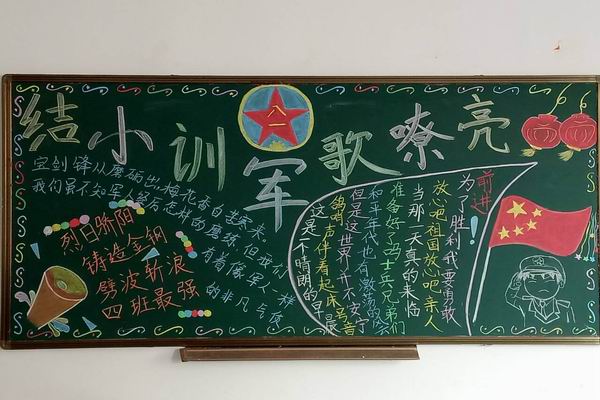 结小训军歌嘹亮
八一
宝剑锋从磨砺出,梅花香自苦寒来。
我们虽不如军人经历怎样的磨练,但我们
有着像军人一样
的非凡气
烈日骄阳
铸造金钢
劈波斩浪
四班最强
这是一个晴朗的早晨
鸽哨声伴着起床号音
但是这世界并不安宁
和平年代也有激荡的风云
准备好了吗士兵兄弟们
当那一天真的来临
放心吧祖国放心吧亲人
为了胜利我要勇敢
前进!